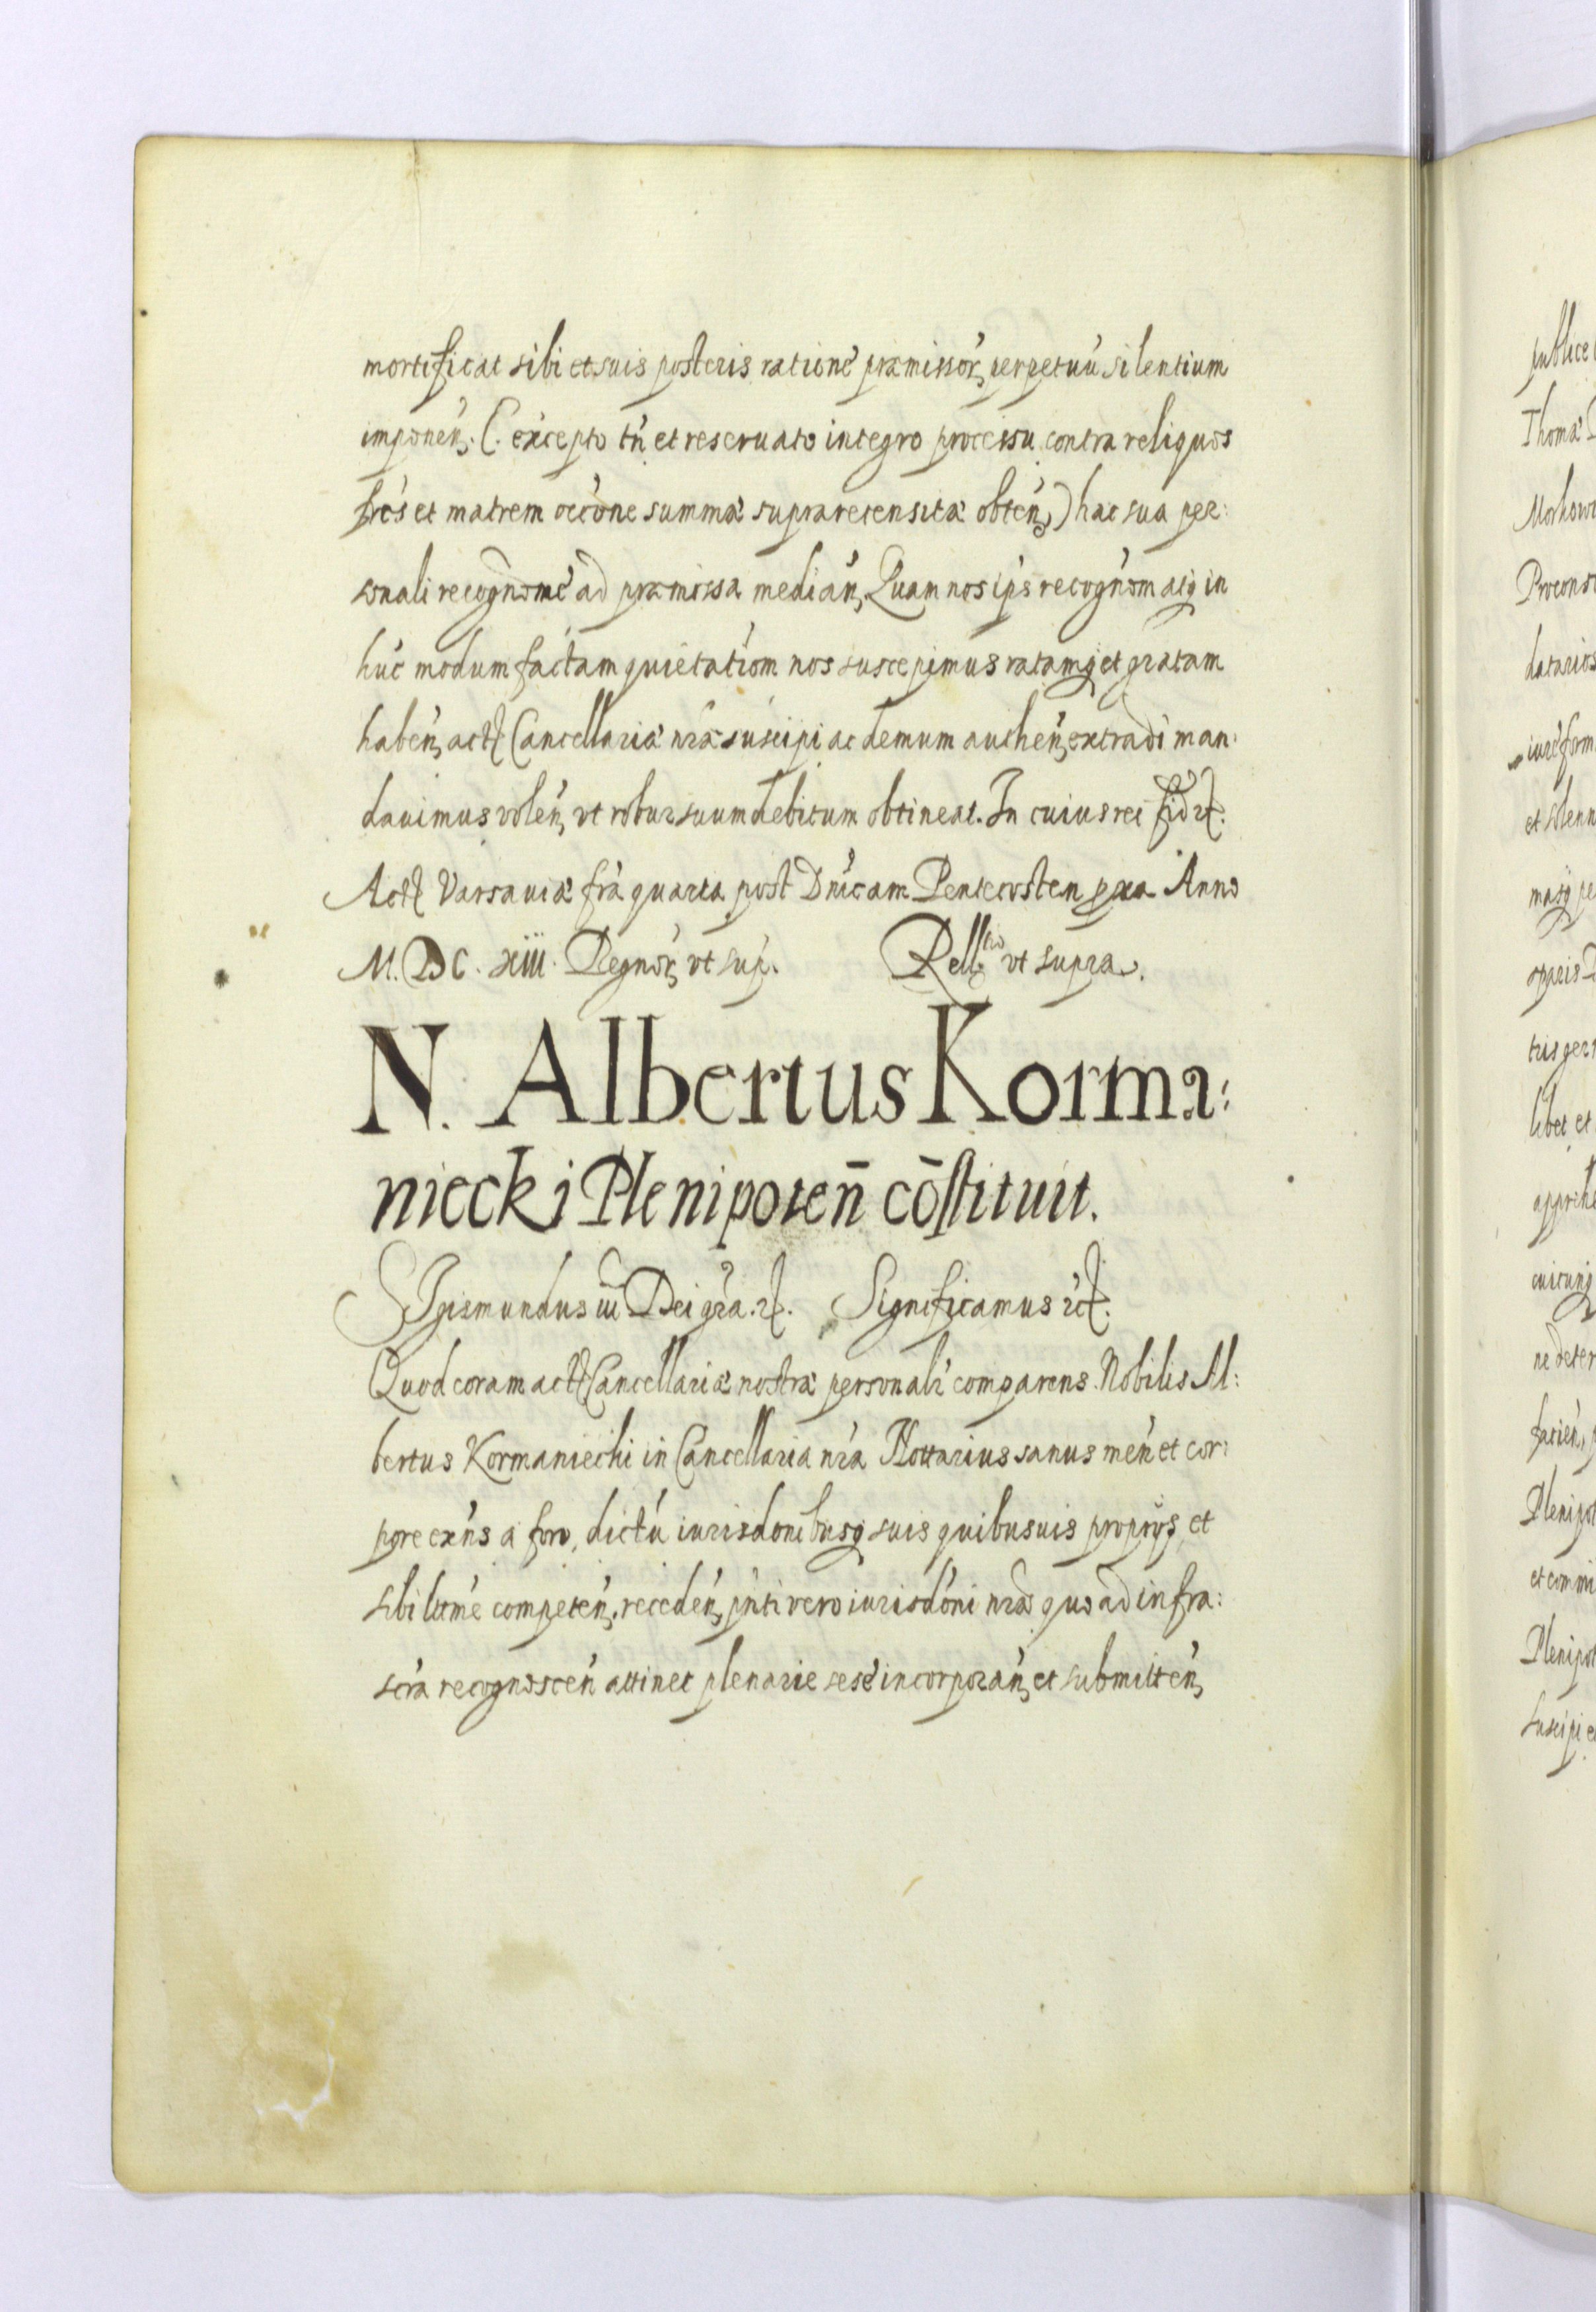 mortificat sibi et suis posteris ratione præmissor perpetuu silentium
imponen. (. excepto tn et reseruato integro processu contra reliquos
fres et matrem occone summæ suprarecensitæ obten,) hac sua per:
sonali recognome ad præmissa median, Quam nos ips recognom atq in
huc modum factam quietatiom nos suscepimus ratamq et gratam
haben, act Cancellariæ nræ suscipi ac demum authen, extradi man:
dauimus volen, vt robur suum debitum obtineat. In cuius rei fid rt.
Act Varsauiæ fra quarta post Dnicam Pentecosten pxa Anno
M. DC. xiii. Regnor vt sup. Rell<sup>tio</sup> vt supra.
N. Albertus Korma:
niecki Plenipoten̄ cōstituit.
SIgismundus iii Dei gra. rt. Significamus rt.
Quod coram act Cancellariæ nostræ personalr comparens Nobilis Al:
bertus Kormaniecki in Cancellaria nra Nottarius sanus men et cor:
pore exns a foro, dictu iurisdonibusq suis quibusuis proprijs et
sibi ltme competen, receden, pnti vero iurisdoni nræ quo ad infra:
scra recognoscen attinet plenarie sese incorporan, et submitten,
publice
Thoma
Proconsu
datarios
iure form
et solenn
masq pe
tris ger
libet et
apprehe
cuicunq
ne deter
facien,
Plenipot
et commi
Plenipot
suscipi e